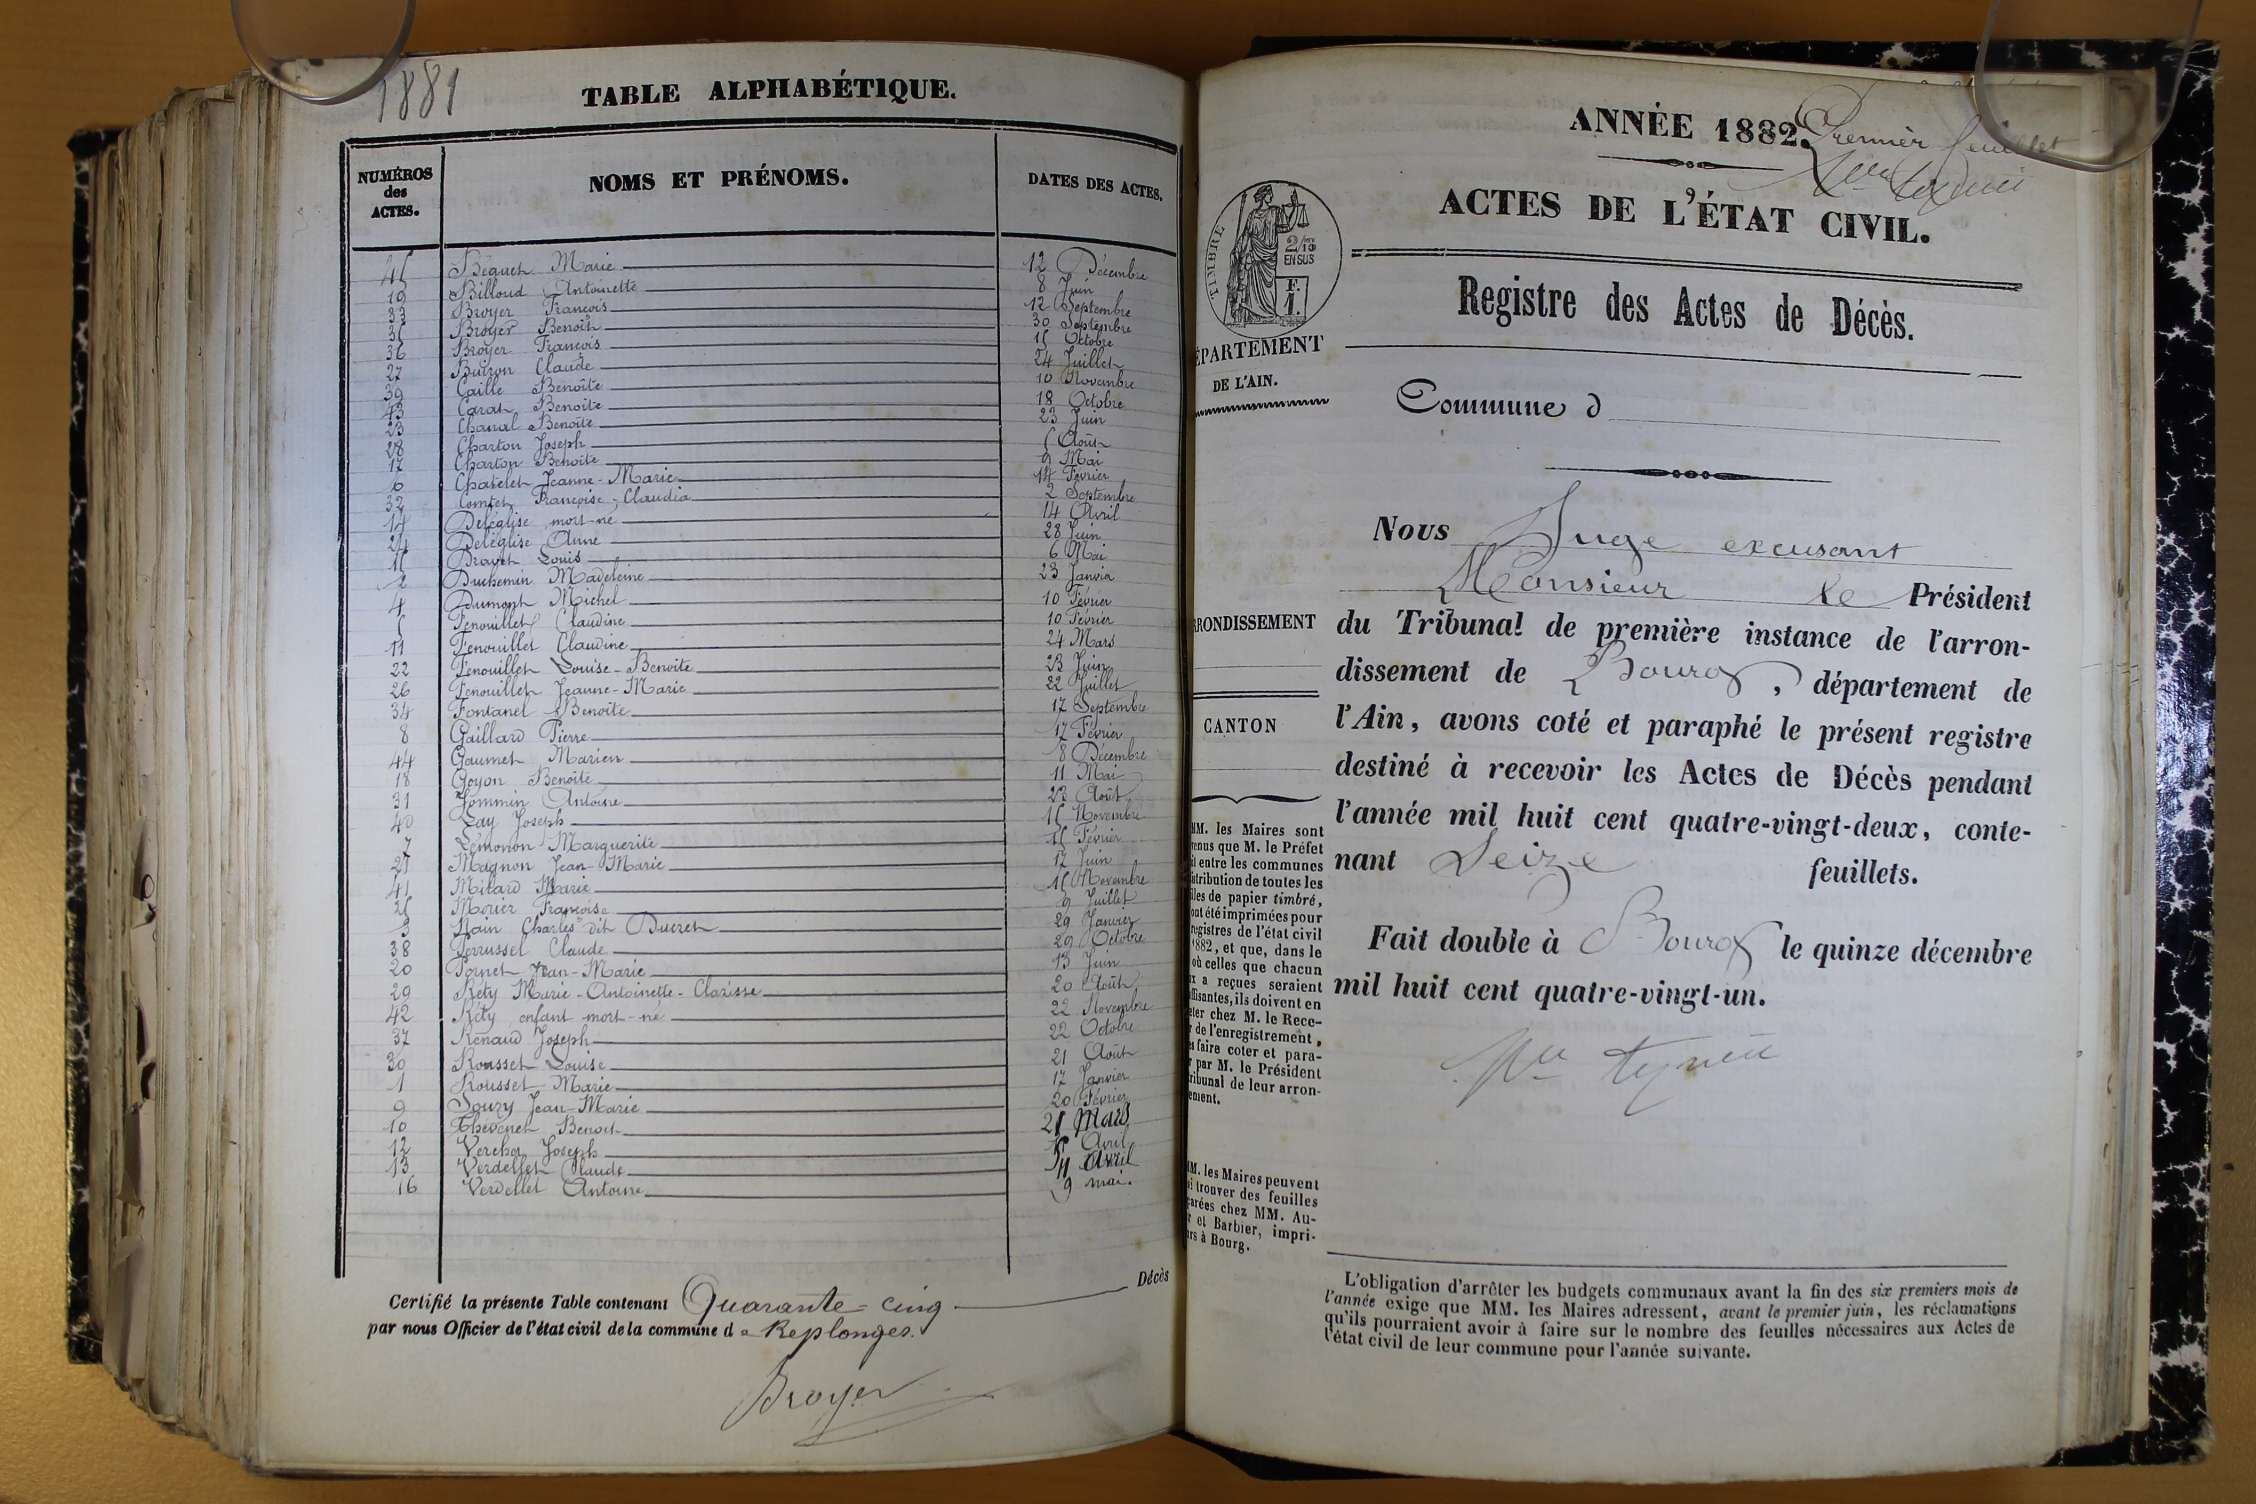 1881
TABLE ALPHABÉTIQUE.
NUMÉROS
des
ACTES.
NOMS ET PRÉNOMS.
DATES DES ACTES.
45 Béguet Marie 12 Décembre
19 Billoud Antoinette 8 Juin
33 Broyer François 12 Septembre
35 Broyer Benoît 30 Septembre
36 Broyer François 15 Octobre
27 Buiron Claude 24 Juillet
39 Caille Benoîte 10 Novembre
43 Carat Benoîte 18 Octobre
23 Chanal Benoîte 23 Juin
28 Charton Joseph 5 Août
17 Charton Benoîte 9 Mai
6 Chatelet Jeanne-Marie 14 Février
32 Comtet Françoise-Claudia 2 Septembre
14 Deléglise mort-né 14 Avril
24 Deléglise Anne 28 Juin
15 Drayet Louis 6 Mai
2 Duchemin Madeleine 23 Janvier
4 Dumont Michel 10 Février
5 Fenouillet Claudine 10 Février
11 Fenouillet Claudine 24 Mars
22 Fenouillet Louise-Benoite 23 Juin
26 Fenouillet Jeanne-Marie 22 Juillet
34 Fontanel Benoîte 17 Septembre
8 Gaillard Pierre 17 Février
44 Gaumet Marien 8 Décembre
18 Goyon Benoîte 11 Mai
31 Jommin Antoine 23 Août
40 Lay Joseph 15 Novembre
7 Lémonon Marguerite 15 Février
21 Magnon Jean-Marie 17 Juin
41 Mitard Marie 15 Novembre
25 Morier Françoise 9 Juillet
3 Nain Charles dit Ducret 29 Janvier
38 Perrussel Claude 29 Octobre
20 Pornet Jean-Marie 13 Juin
29 Réty Marie-Antoinette-Clarisse 20 Août
42 Réty enfant mort-né 22 Novembre
37 Renaud Joseph 22 Octobre
30 Rousset Louise 21 Août
1 Rousset Marie 17 Janvier
9 Souzy Jean-Marie 20 Février
10 Thévenet Benoit 21 Mars
12 Vercher Joseph Avril
13 Verdellet Claude 11 Avril
16 Verdellet Antoine 9 mai.
Certifié la présente Table contenant Quarante-cinq Décès
par nous Officier de l'état civil de la commune d e Replonges.
Broyer
ANNÉE 1882.
Premier feuillet
ACTES DE L'ÉTAT CIVIL.
TIMBRE
2/10
EN SUS
F.
1.
Registre des Actes de Décès.
ÉPARTEMENT
DE L'AIN.
Commune d
Nous Juge excusant
Monsieur le Président
RONDISSEMENT
du Tribunal de première instance de l'arron-
dissement de Bourg, département de
CANTON
l'Ain, avons coté et paraphé le présent registre
destiné à recevoir les Actes de Décès pendant
l'année mil huit cent quatre-vingt-deux, conte-
nant Seize feuillets.
Fait double à Bourg le quinze décembre
mil huit cent quatre-vingt-un.
MM. les Maires sont
enus que M. le Préfet
it entre les communes
stribution de toutes les
lles de papier timbré,
ont été imprimées pour
registres de l'état civil
1882, et que, dans le
où celles que chacun
ux a reçues seraient
ffisantes, ils doivent en
eter chez M. le Rece-
r de l'enregistrement,
es faire coter et para-
r par M. le Président
ribunal de leur arron-
ement.
MM. les Maires peuvent
si trouver des feuilles
arées chez MM. Au-
r et Barbier, impri-
rs à Bourg.
L'obligation d'arrêter les budgets communaux avant la fin des six premiers mois de
l'année exige que MM. les Maires adressent, avant le premier juin, les réclamations
qu'ils pourraient avoir à faire sur le nombre des feuilles nécessaires aux Actes de
l'état civil de leur commune pour l'année suivante.